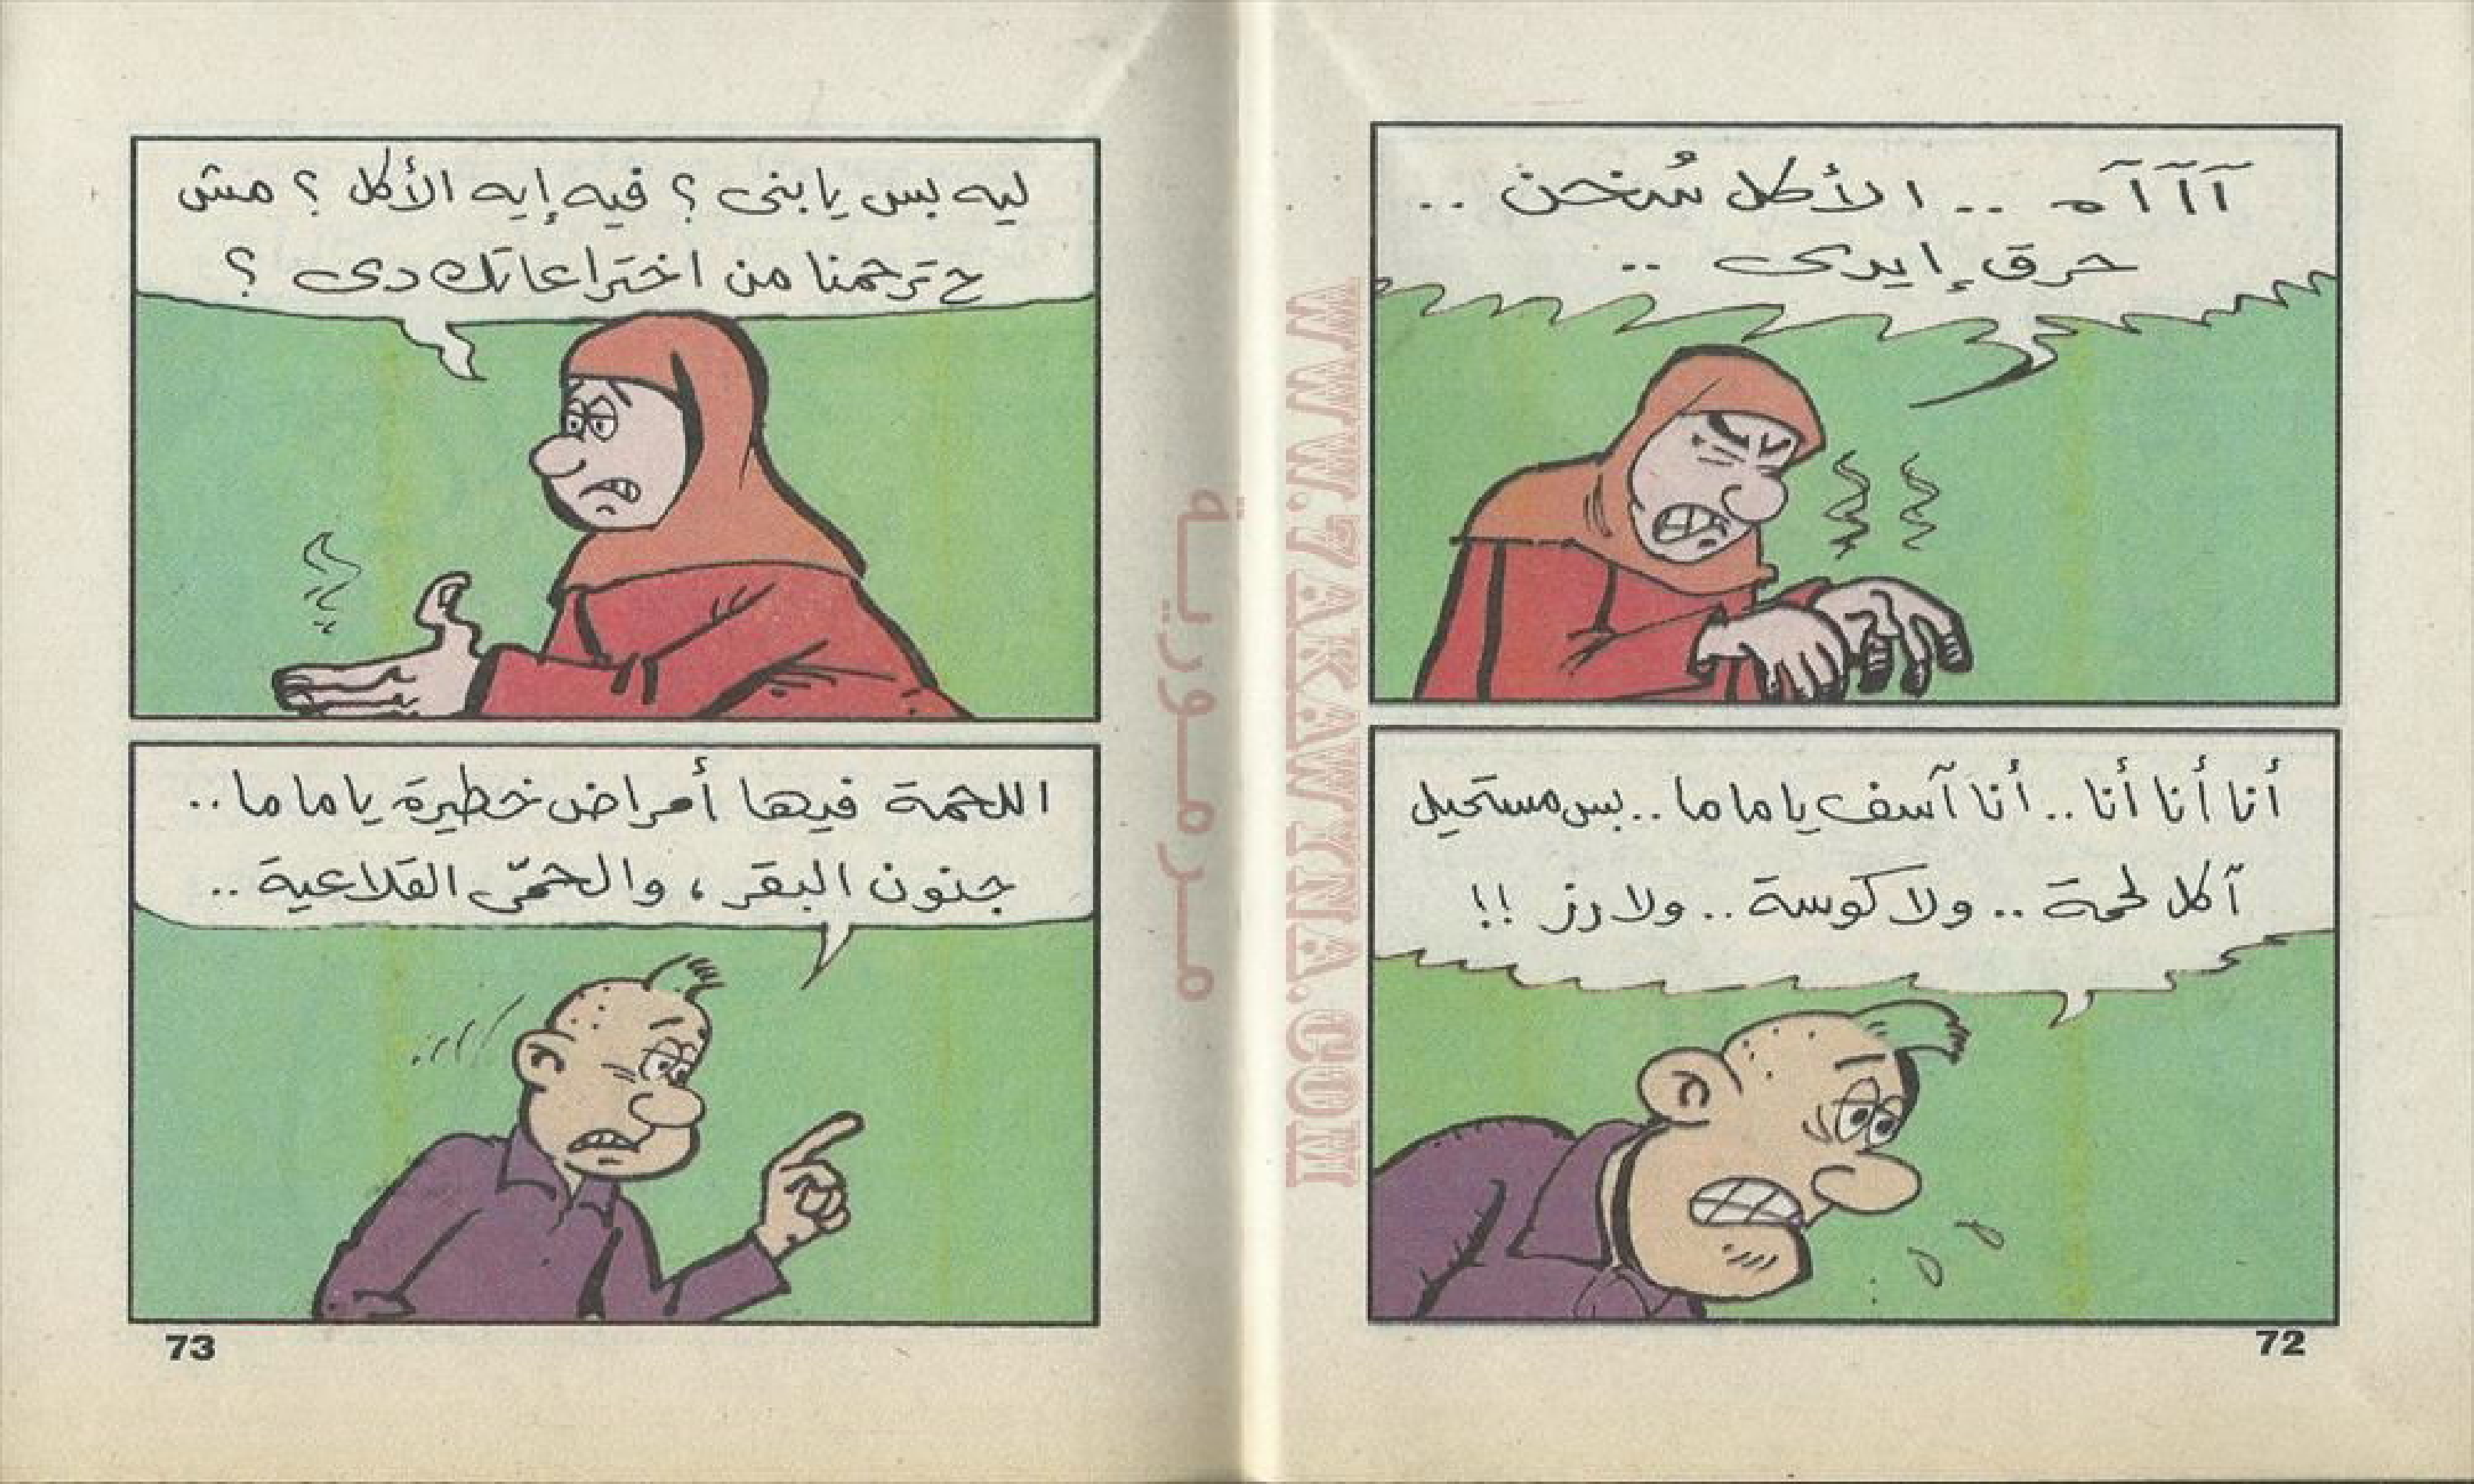 آآآه .. الأكل سُخن ..
حرق إيدى ..
أنا أنا أنا .. أنا آسف يا ماما .. بس مستحيل
آكل لحمة .. ولا كوسة .. ولا رز !!
72
ليه بس يا بنى ؟ فيه إيه الأكل ؟ مش
ح ترحمنا من اختراعاتك دى ؟
اللحمة فيها أمراض خطيرة يا ماما ..
جنون البقر ، والحمّى القلاعية ..
73
مرمورية
WWW.7AKAWYNA.COM